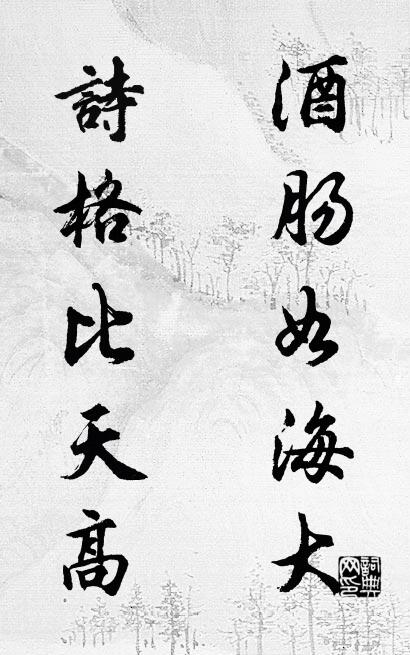 酒肠如海大
詩格比天高
詞典网印